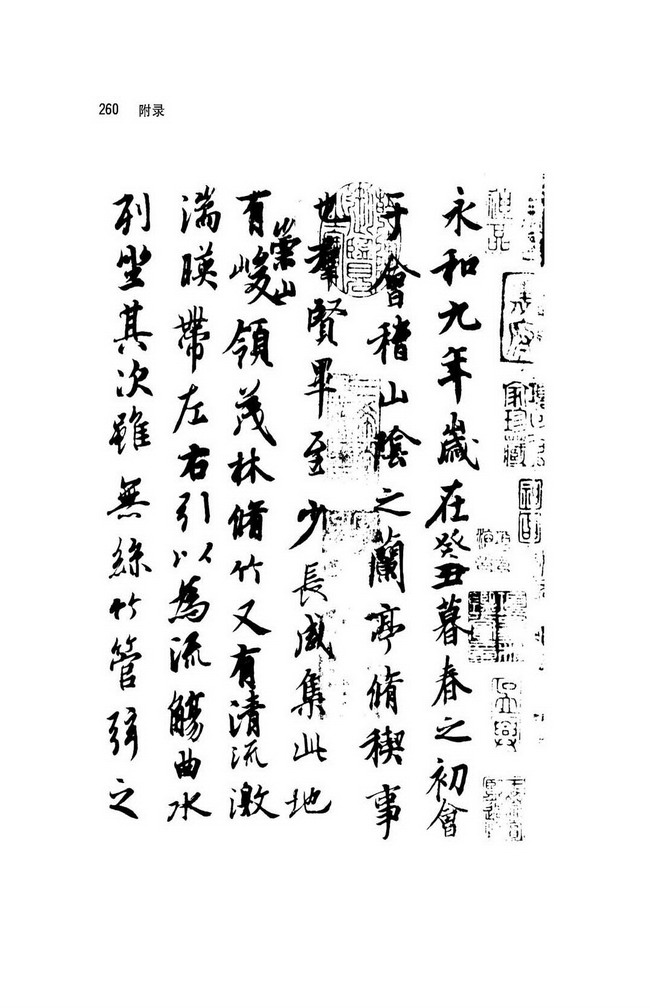 260 附录
永和九年歲在癸丑暮春之初會
于會稽山陰之蘭亭脩稧事
也羣賢畢至少長咸集此地
有崇山峻領茂林脩竹又有清流激
湍暎帶左右引以為流觴曲水
列坐其次雖無絲竹管弦之